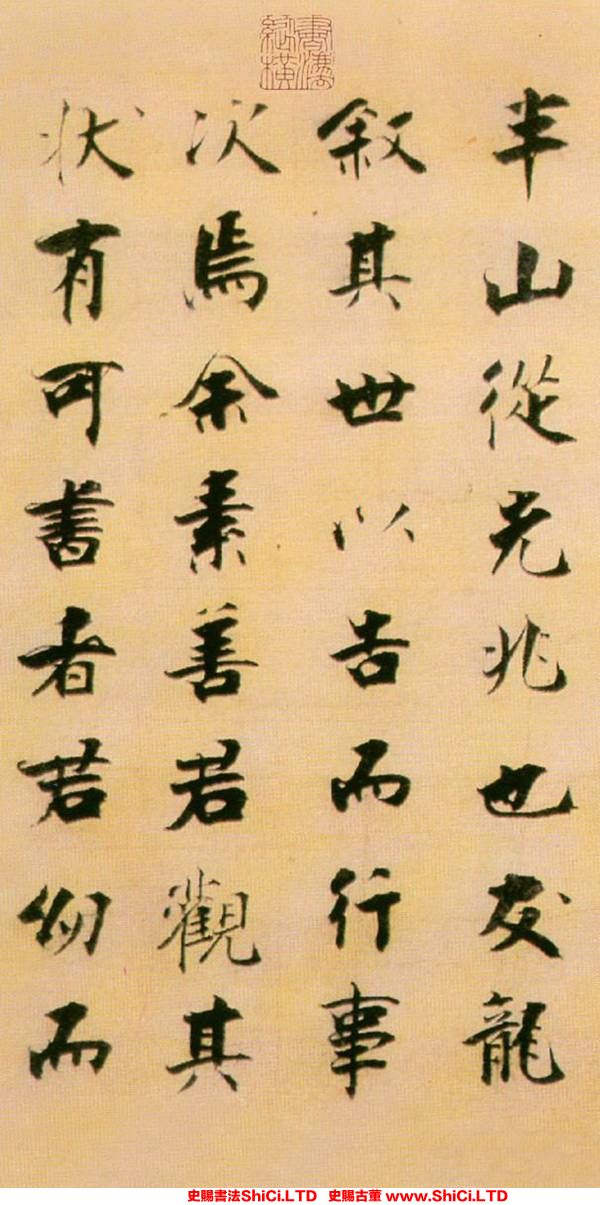 書濤縱橫
半山從先兆也友龍
敘其世以告而行事
次焉余素善君觀其
狀有可書者若幼而
史賜書法ShiCi.LTD 史賜古董 www.ShiCi.LTD